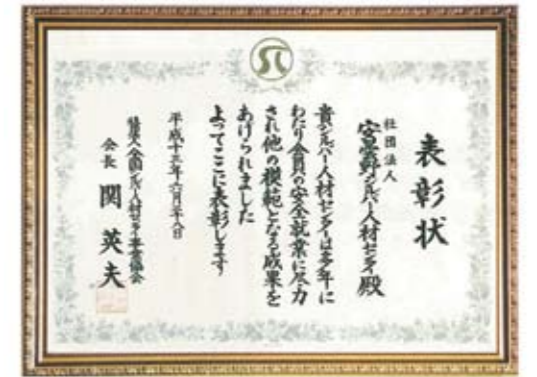 表彰状
社団法人
安曇野シルバー人材センター殿
貴シルバー人材センターは多年に
わたり会員の安全就業に尽力
され他の模範となる成果を
あげられました
よってここに表彰します
平成十三年六月二十八日
社団法人全国シルバー人材センター事業協会
会長 関英夫